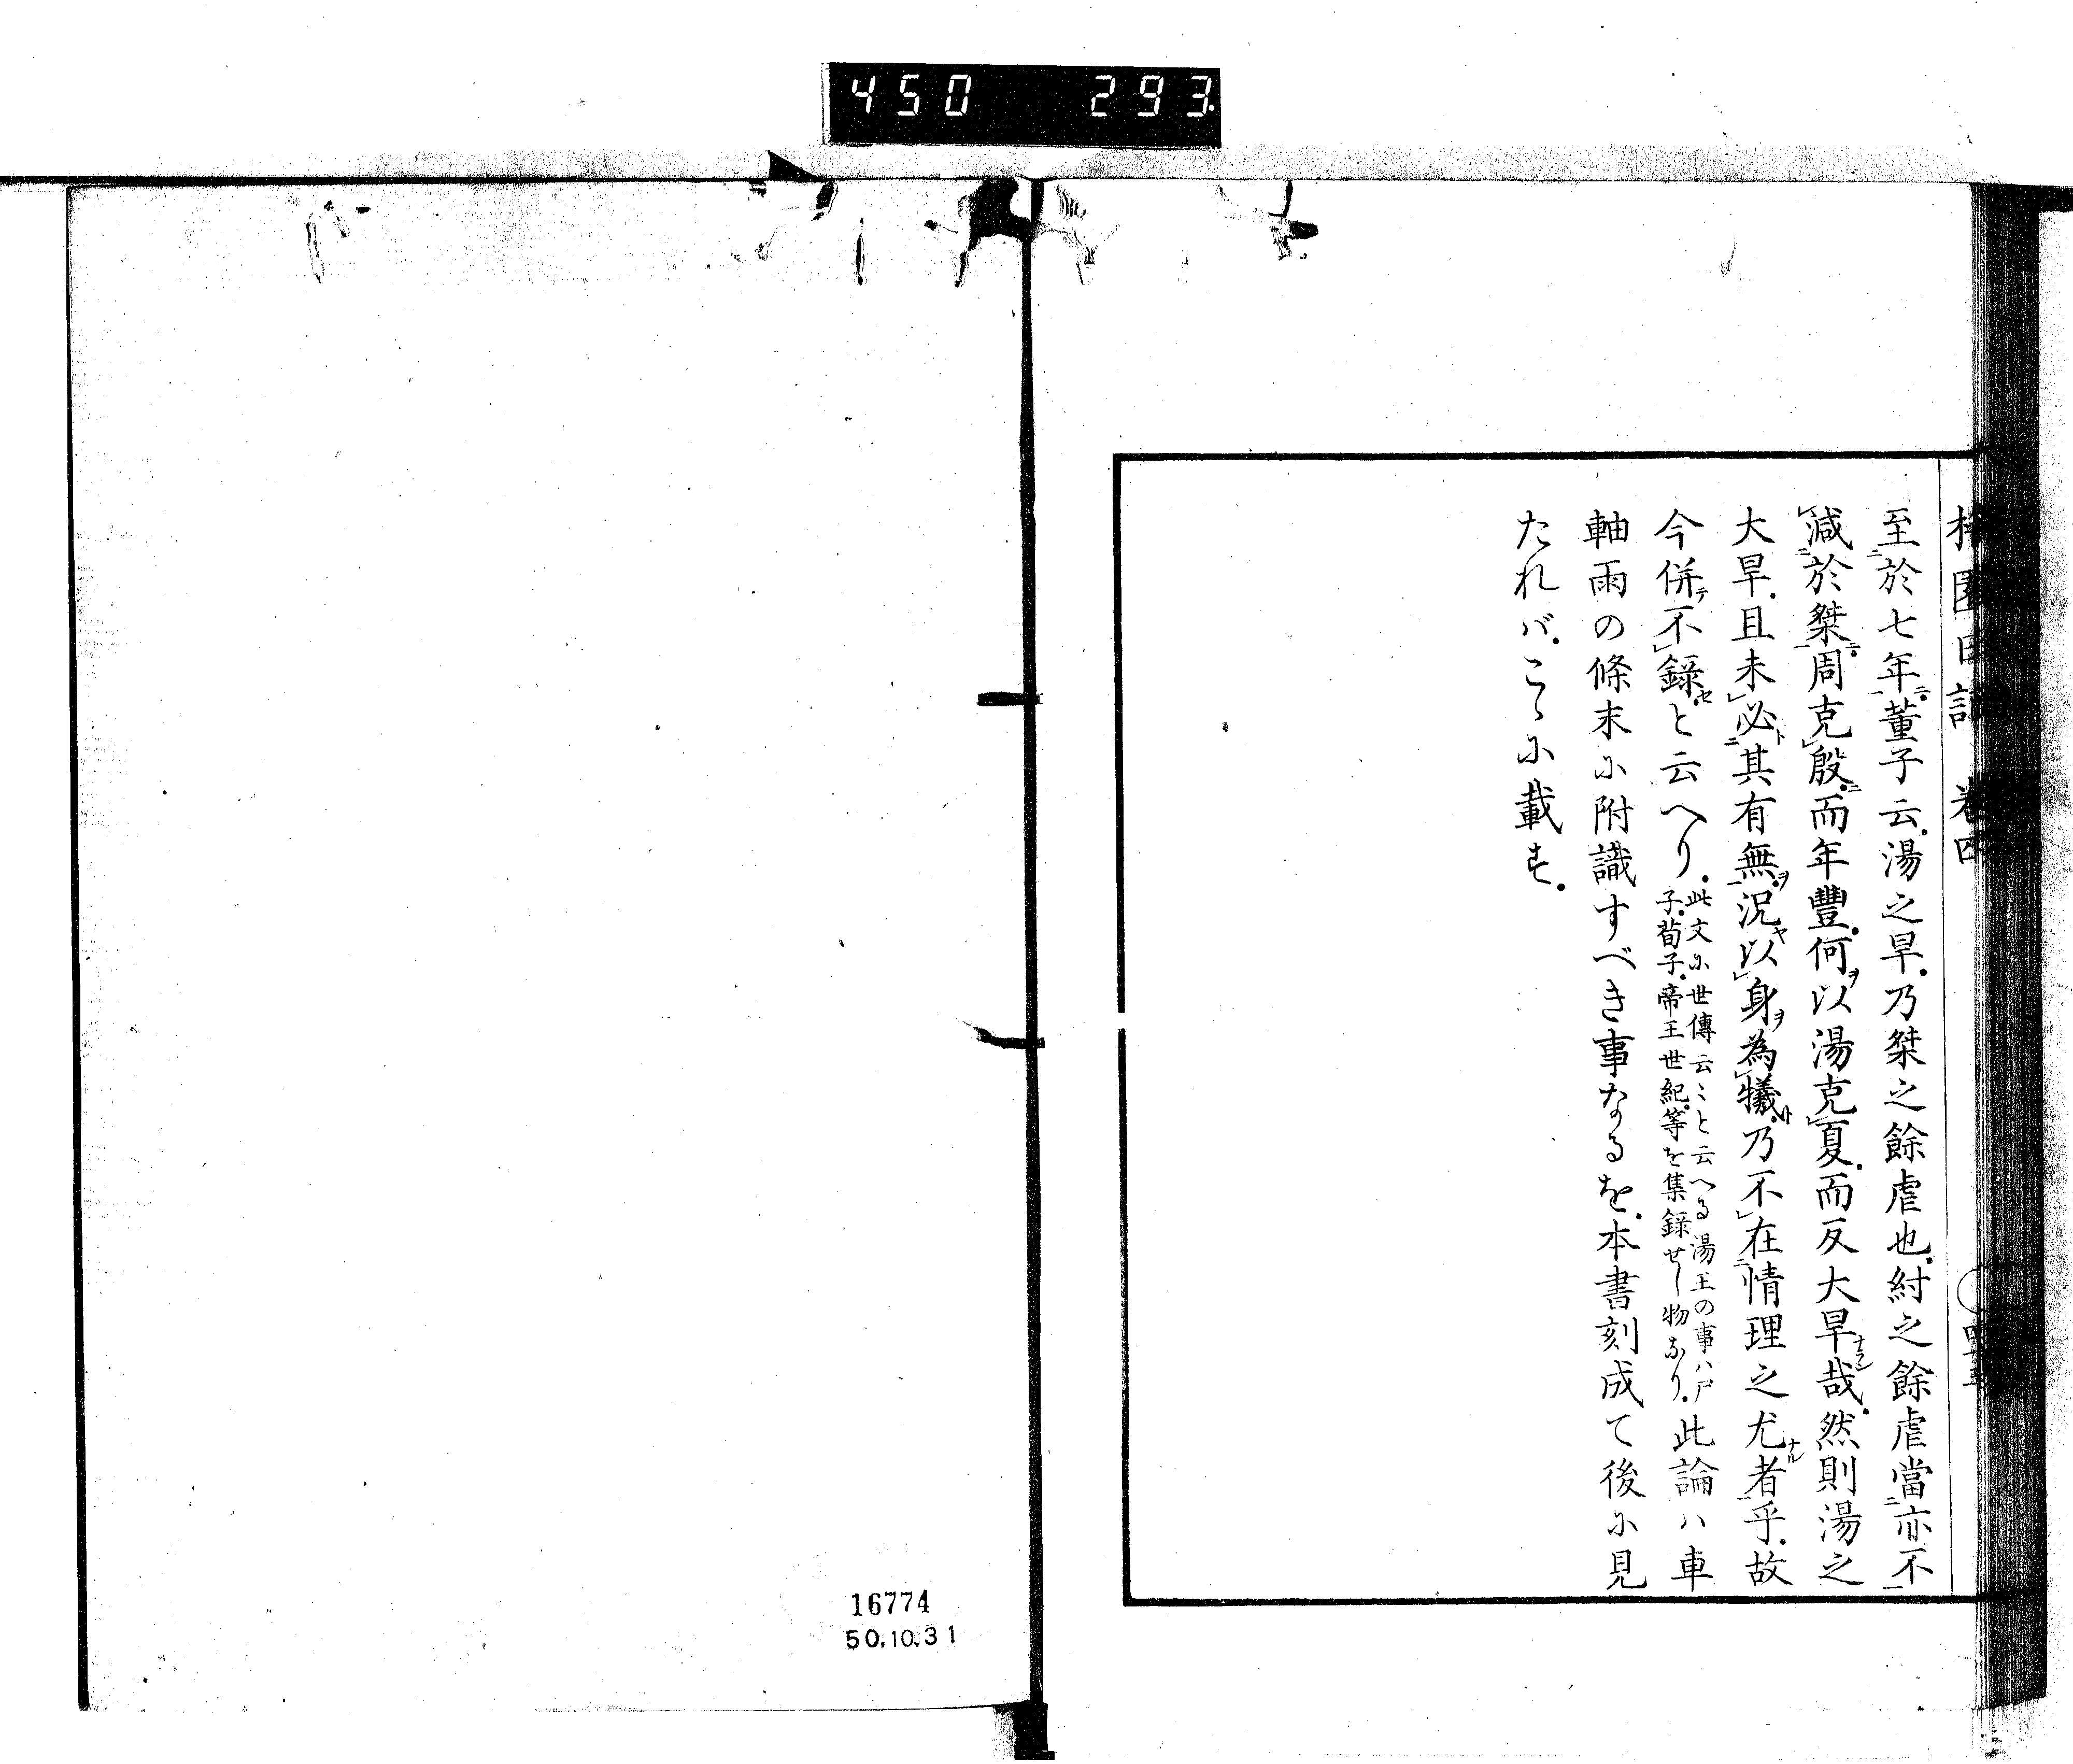 450 293
園日記 卷四
至於七年董子云湯之旱乃桀之餘虐也紂之餘虐當亦不
減於桀周克殷而年豐何以湯克夏而反大旱哉然則湯之
大旱且未必其有無況以身為犠乃不在情理之尤者乎故
今併不録と云へり此文に世傳云〻と云へる湯王の事ハ尸
子荀子帝王世紀等を集録せし物なり此論ハ車
軸雨の條末に附識すべき事なるを本書刻成て後に見
たれバこゝに載す
16774
50.10.31